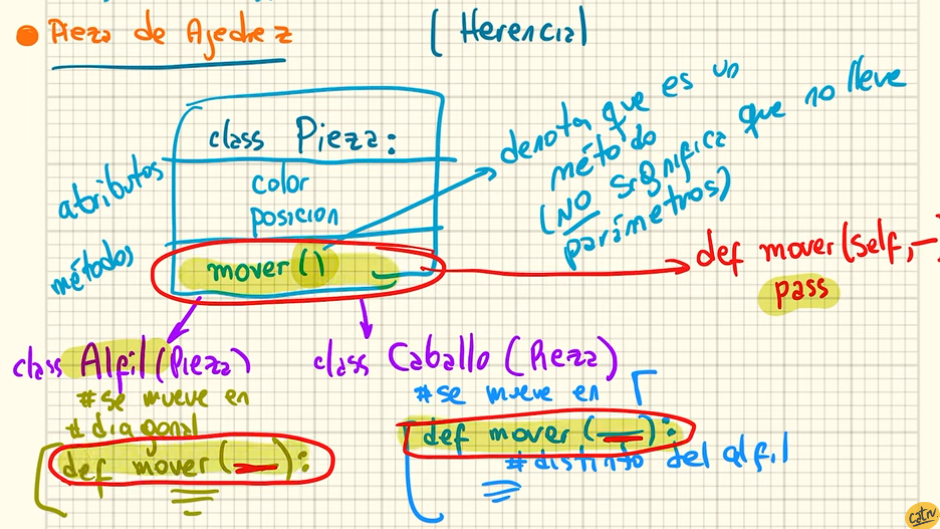 Pieza de Ajedrez
(Herencia)
class Pieza:
atributos
color
posicion
métodos
mover()
denota que es un
método
(NO significa que no lleve
parámetros)
def mover(Self,—
pass
class Alfil(Pieza)
#se mueve en
#diagonal
def mover(—):
class Caballo(Pieza)
#se mueve en
def mover(—):
#distinto del alfil